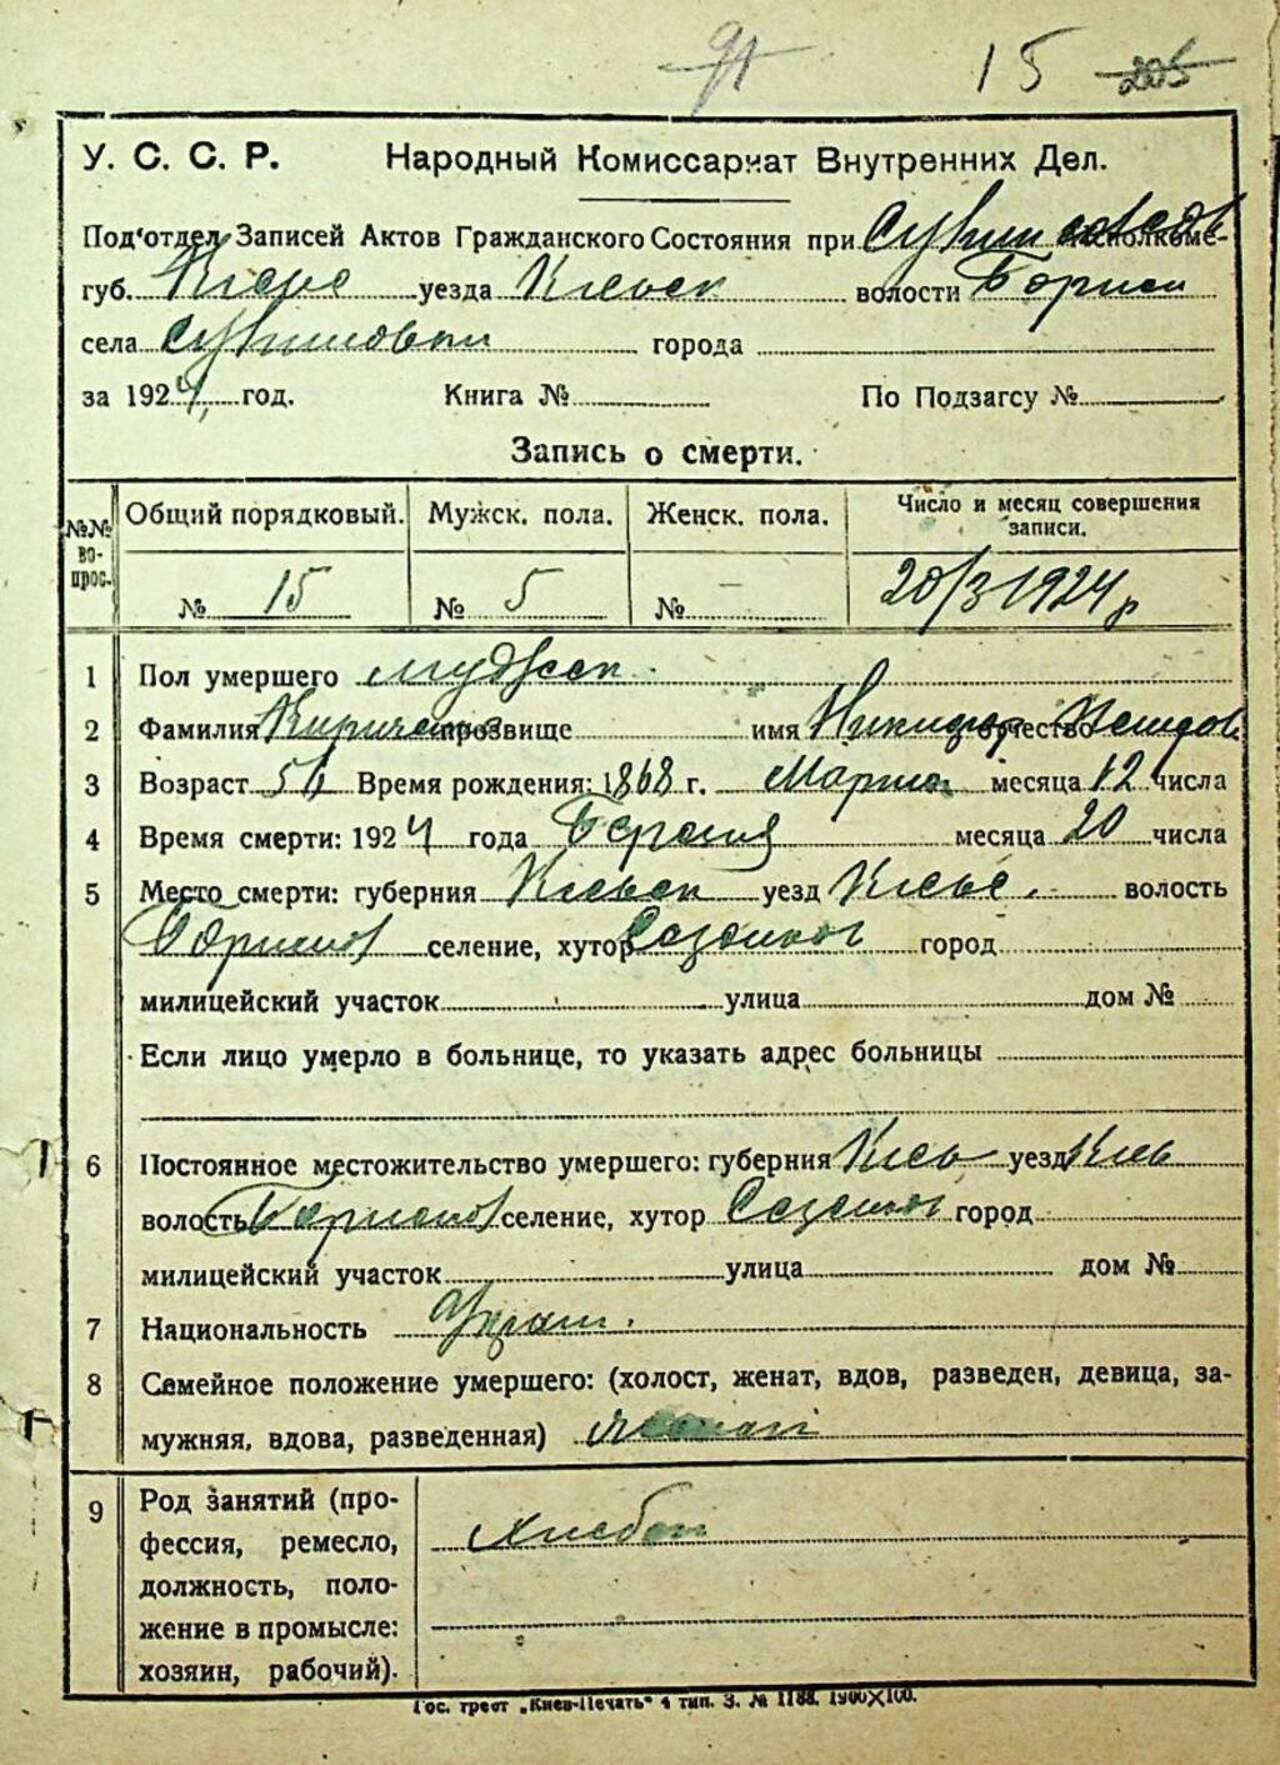 15 205
У. С. С. Р. Народный Комиссариат Внутренних Дел.
Под'отдел Записей Актов Гражданского Состояния при исполкоме-
губ. Киевс уезда Киевск волости Борисп
села города
за 1924 год. Книга № По Подзагсу №
Запись о смерти.
№№ во-прос. Общий порядковый. Мужск. пола. Женск. пола. Число и месяц совершения записи.
№ 15 № 5 № — 20/3 1924 р
1 Пол умершего мужск
2 Фамилия прозвище имя Никифор отчество
3 Возраст 56 Время рождения: 1868 г. Марта месяца 12 числа
4 Время смерти: 1924 года Березня месяца 20 числа
5 Место смерти: губерния Киевск уезд Киевс. волость
селение, хутор город
милицейский участок улица дом №
Если лицо умерло в больнице, то указать адрес больницы
6 Постоянное местожительство умершего: губерния Киев уезд Киев
волость селение, хутор город
милицейский участок улица дом №
7 Национальность Украин.
8 Семейное положение умершего: (холост, женат, вдов, разведен, девица, за-
мужняя, вдова, разведенная)
9 Род занятий (про-
фессия, ремесло,
должность, поло-
жение в промысле:
хозяин, рабочий).
Гос. трест „Киев-Печать" 4 тип. З. № 1188. 1900×100.